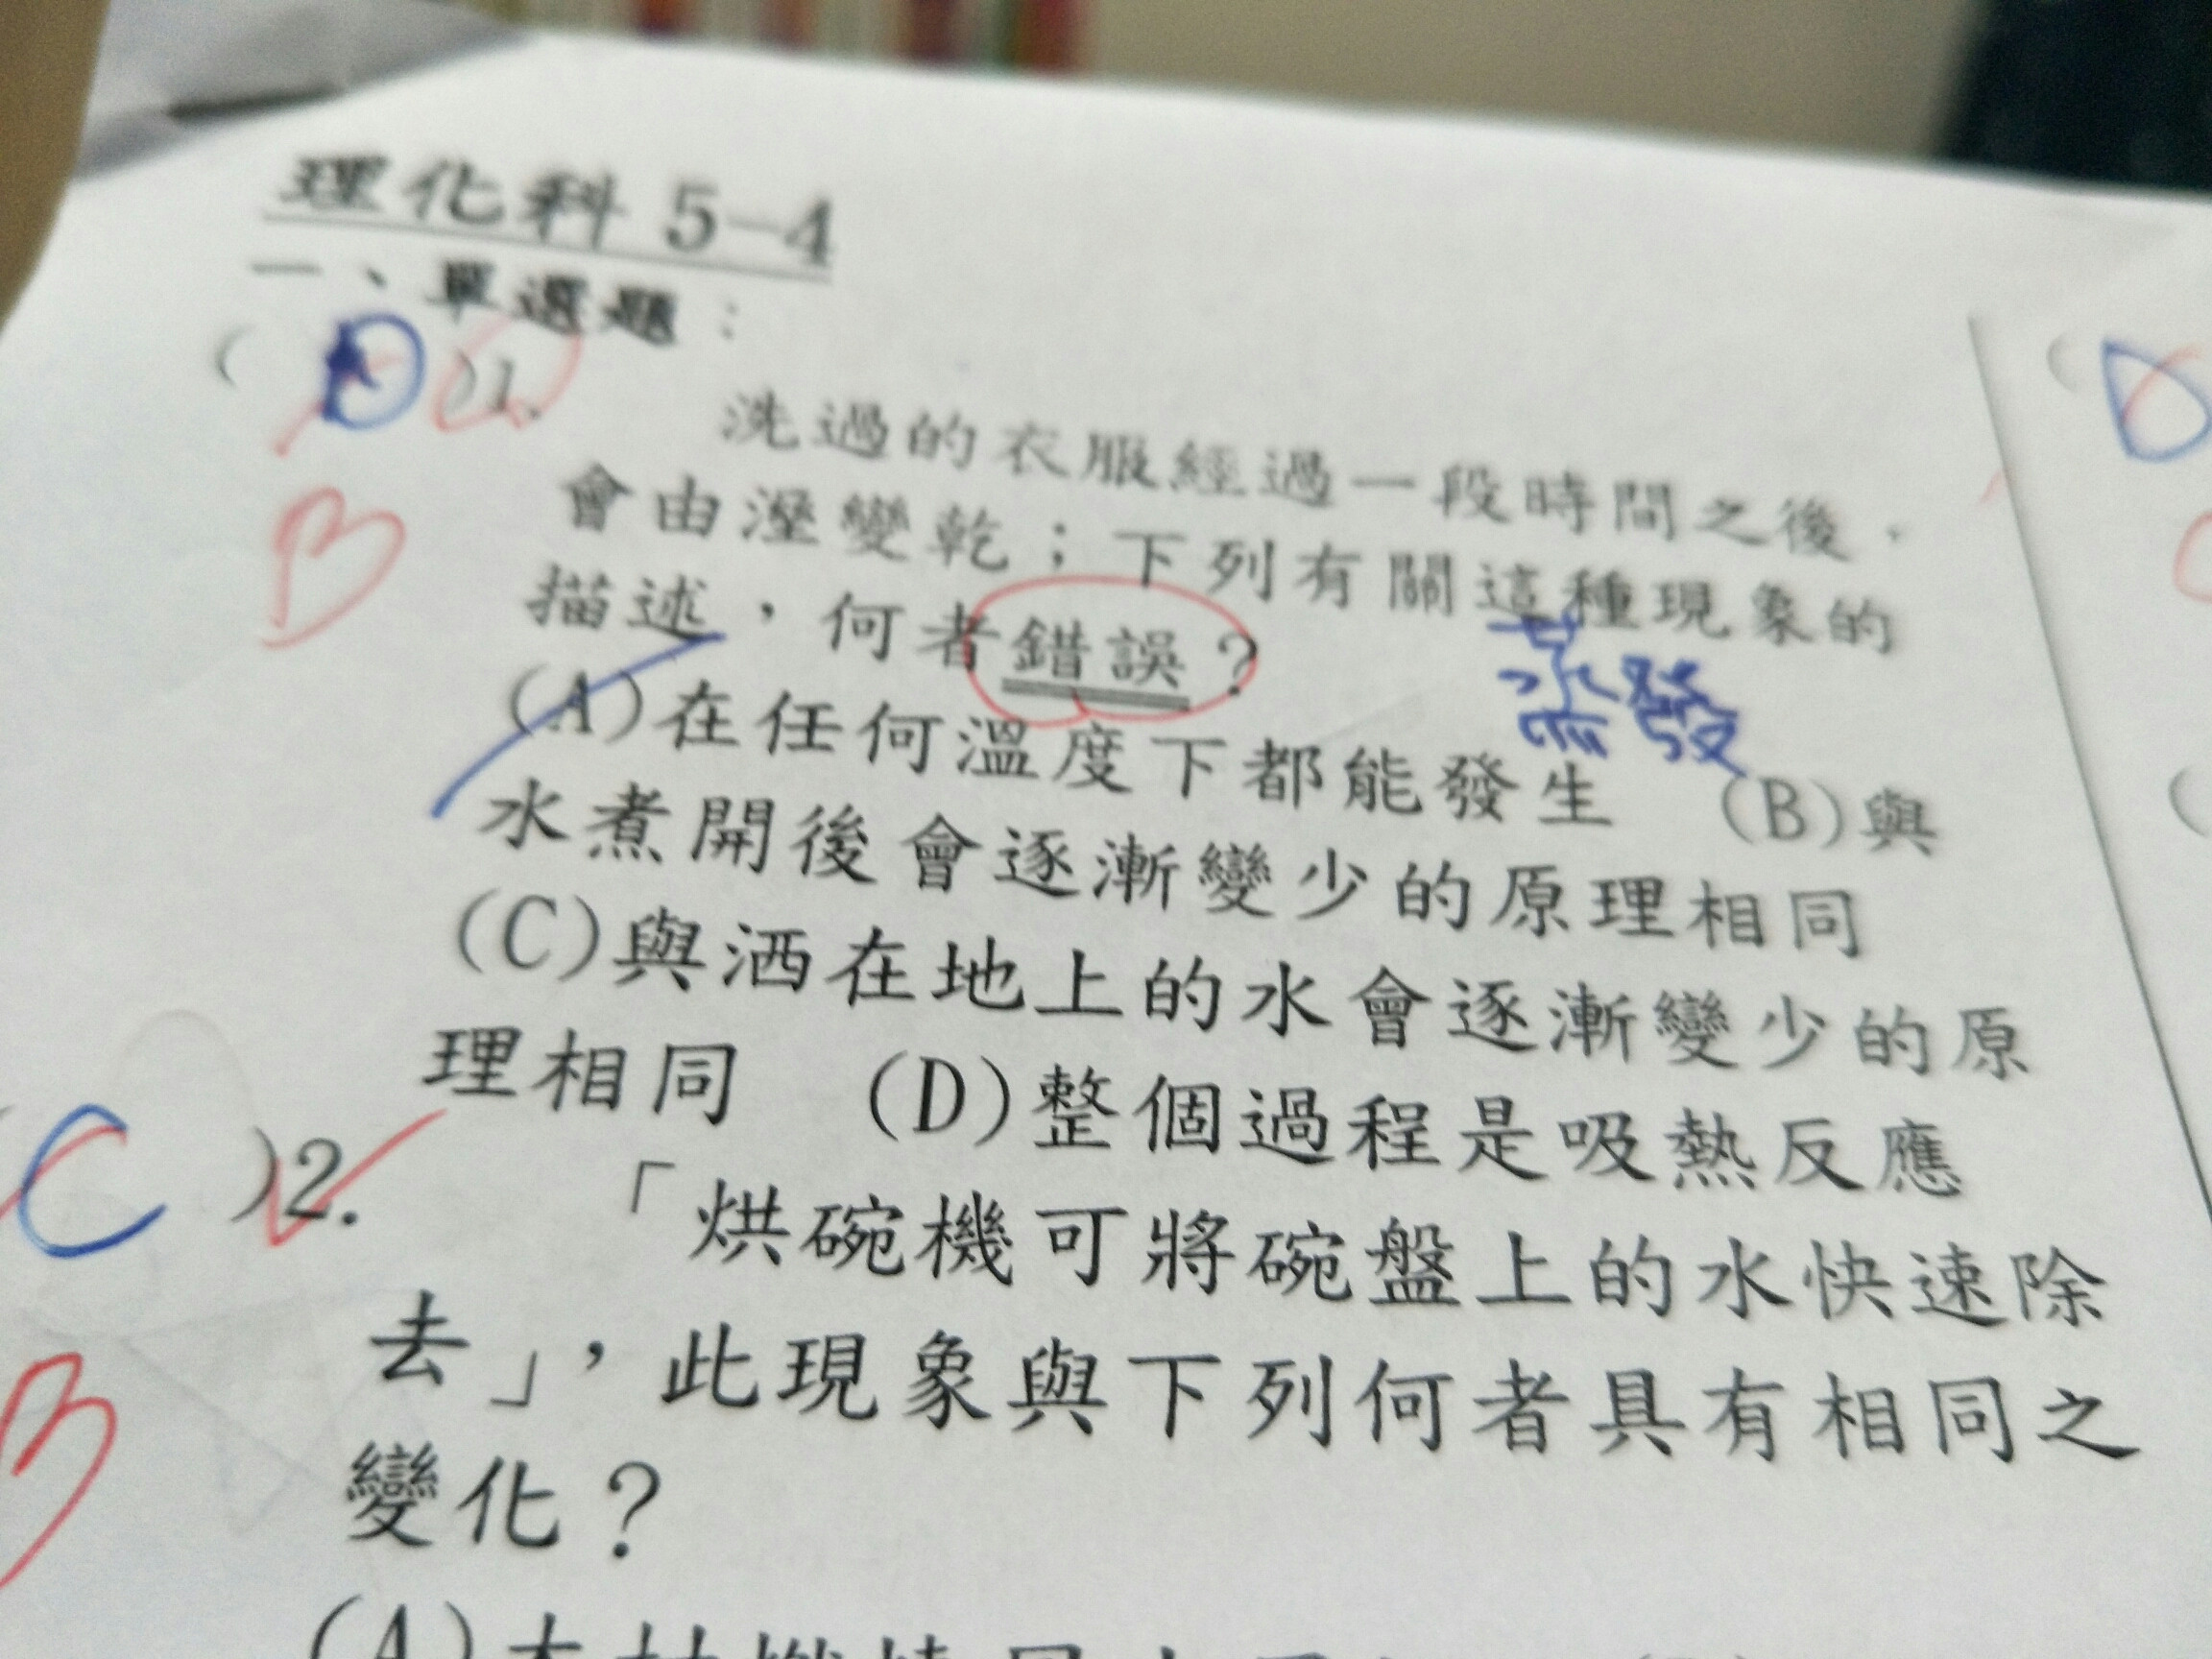 理化科 5-4
一、單選題：
( D )1.
洗過的衣服經過一段時間之後，
會由溼變乾；下列有關這種現象的
B
描述，何者錯誤？
蒸發
(A)在任何溫度下都能發生 (B)與
水煮開後會逐漸變少的原理相同
(C)與洒在地上的水會逐漸變少的原
理相同 (D)整個過程是吸熱反應
C )2. 「烘碗機可將碗盤上的水快速除
去」，此現象與下列何者具有相同之
B
變化？
(A)木材燃燒
( D